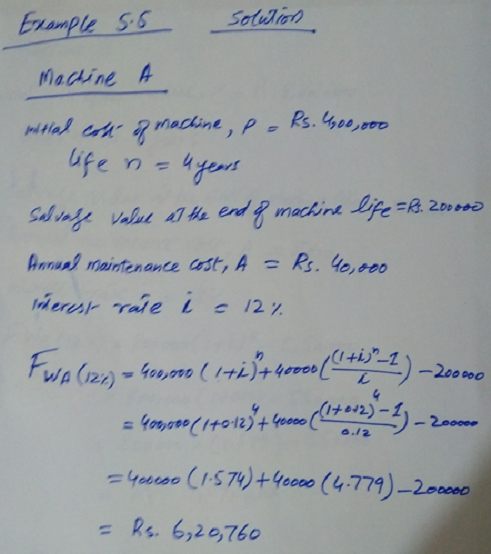 Example 5.5 Solution
Machine A
initial cost of machine, P = Rs. 4,00,000
life n = 4 years
Salvage value at the end of machine life = Rs. 200000
Annual maintenance cost, A = Rs. 40,000
interest rate i = 12 %
F_WA (12%) = 400,000 (1+i)^n + 40000 (((1+i)^n - 1)/i) - 200000
= 400,000 (1+0.12)^4 + 40000 (((1+0.12)^4 - 1)/0.12) - 200000
= 400000 (1.574) + 40000 (4.779) - 200000
= Rs. 6,20,760